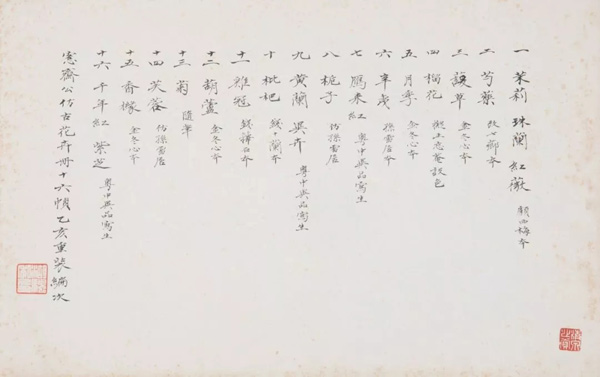 一 茉莉 珠蘭 紅薇 顧西梅本
二 芍藥 改七薌本
三 諼草 金冬心本
四 榴花 撫王忘菴設色
五 月季 金冬心本
六 牽牛 孫雪居本
七 雁來紅 粵中異品寫生
八 梔子 仿孫雪居
九 黃蘭 異卉 粵中異品寫生
十 枇杷 錢十蘭本
十一 雞冠 錢蘀石本
十二 葫蘆 金冬心本
十三 菊 隨筆
十四 芙蓉 仿孫雪居
十五 香櫞 金冬心本
十六 千年紅 紫芝 粵中異品寫生
愙齋公仿古花卉冊十六幀乙亥重裝編次